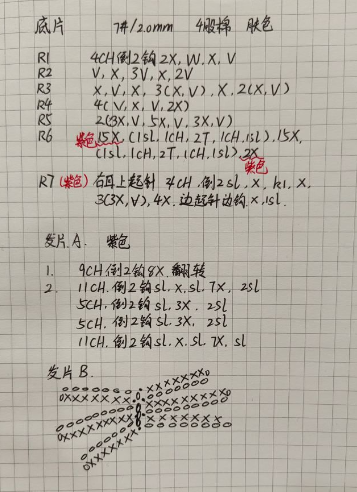 底片 7#/2.0mm 4股棉 肤色
R1 4CH倒2钩2X, W, X, V
R2 V, X, 3V, X, 2V
R3 X, V, X, 3(X,V), X, 2(X,V)
R4 4(V, X, V, 2X)
R5 2(3X, V, 5X, V, 3X, V)
R6 紫色 15X, (1sl, 1CH, 2T, 1CH, 1sl), 15X,
(1sl, 1CH, 2T, 1CH, 1sl), 2X
紫色
R7 (紫色) 右耳上起针 4CH, 倒2sl, X, X,
3(3X, V), 4X, 边起针边钩, X, 1sl.
发片A. 紫色
1. 9CH.倒2钩8X, 翻转
2. 11CH.倒2钩sl.X.sl.7X, 2sl
5CH.倒2钩sl.3X, 2sl
5CH.倒2钩sl.3X, 2sl
11CH.倒2钩sl.X.sl.7X, sl
发片B.